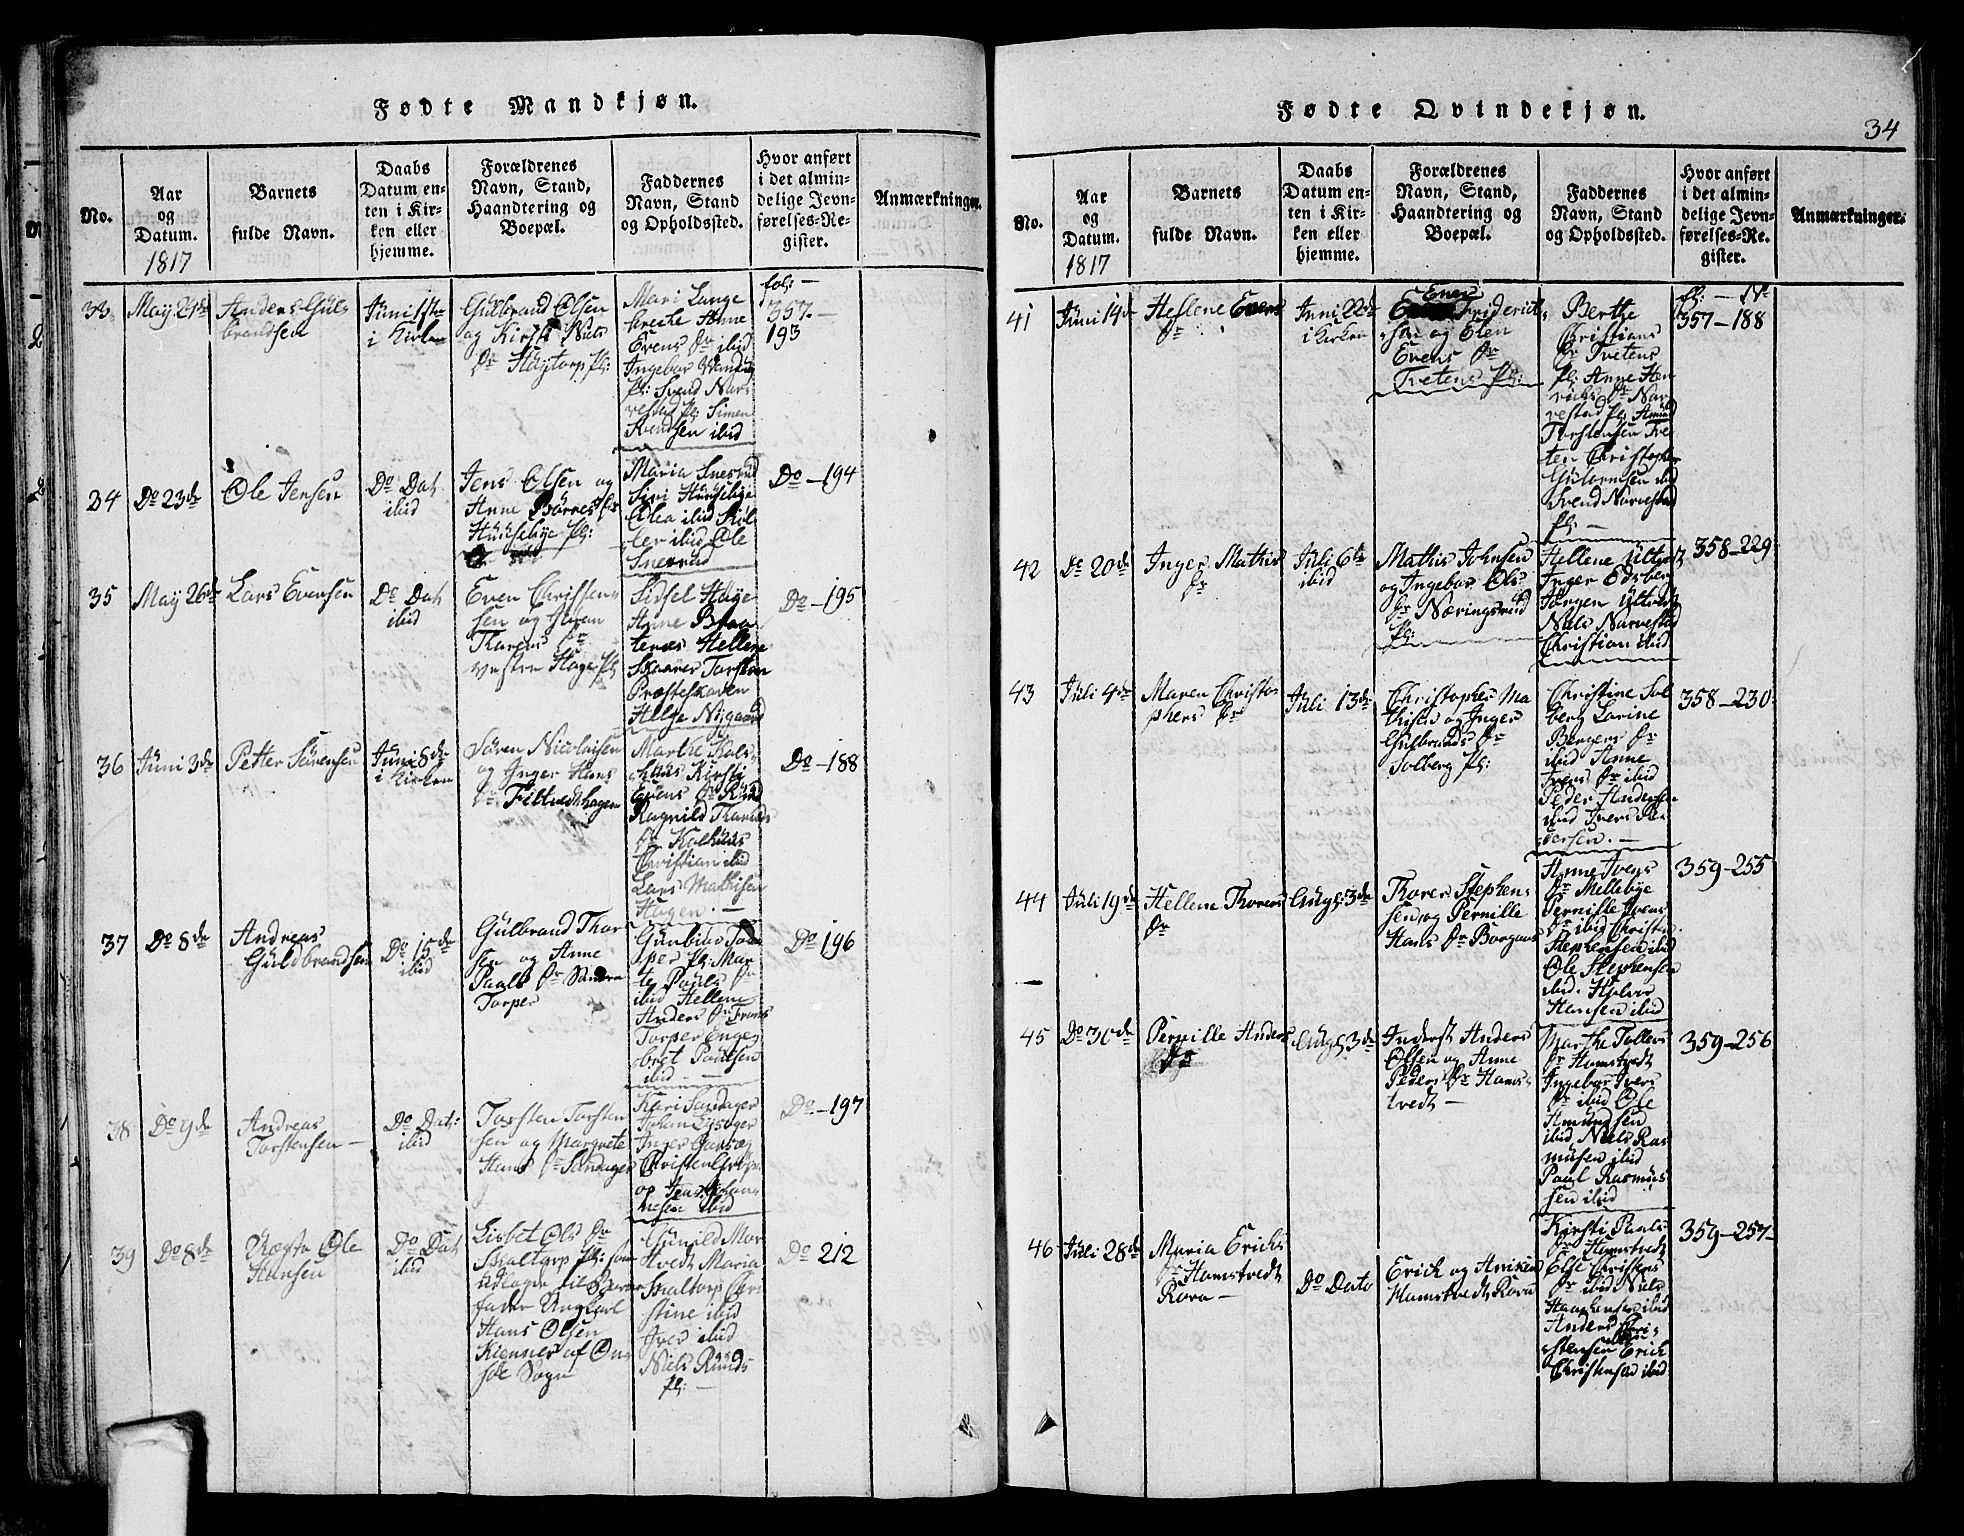 Fødte Mandkjøn.
No.
Aar
og
Datum.
1817
Barnets
fulde Navn.
Daabs
Datum en-
ten i Kir-
ken eller
hjemme.
Forældrenes
Navn, Stand,
Haandtering og
Boepæl.
Faddernes
Navn, Stand
og Opholdssted.
Hvor anført
i det almin-
delige Jevn-
førelses-Re-
gister.
Anmærkninger.
May 21de
Anders Gul-
brandsen
Juni 1ste
i Kirken
Gulbrand Olsen
og Kirsti Niels
Dr Haytorp pl:
Mari Lunge
breche Anne
Evens Dr ibid
Ingebor
pl: Svend Nar-
vestad pl: Simen
Svendsen ibid
fol: —
357 —
193
34
Do 23de
Ole Jensen
Do Dat
ibid
Jens Olsen og
Anne Børres Dr
Hüüsebye pl:
Maria Snesrud
Siri Hüüsebye
Olea ibid
ibid Ole
Snesrud
Do — 194
35
May 26de
Lars Evensen
Do Dat
ibid
Even Christen-
sen og
Thores Dr
vestre Hage pl
Sidsel Hage
Anne Braa-
tenes Hellene
Skaarer Torsten
Præsteskoven
Helge Nygaard
Do — 195
36
Juni 3de
Petter Sørensen
Juni 8de
i Kirken
Søren Nicolaisen
og Inger Hans
Dr Filtvedthagen
Marthe Kols-
huus Kirsti
Evens Dr Rüud
Ragnild Thores
Dr Kolhuus
Christian ibid
Lars Mathisen
Hagen. —
Do — 188
37
Do 8de
Andreas
Guldbrandsen
Do 15de
ibid
Gülbrand Thor
sen og Anne
Paals Dr Søndre
Torper
Gunbior Tor-
per pl: Mar-
te Pouls Dr
ibid Hellene
Anders Dr
Torper Enge-
bret Poulsen
ibid —
Do — 196
38
Do 9de
Andreas
Torstensen —
Do Dat:
ibid
Torsten Torsten
sen og Margrete
Hans Dr Sandager
Kari Sandager
Johan
Inger
Christen
og Jens
nesen ibid
Do — 197
39
Do 8de
Uægte Ole
Hansen
Do Dat
ibid
Lisbet Ols Dr
Skaltorp pl: som
udlagde til Barne-
fader Ungkarl
Hans Olsen
Kiønner af Ons-
søe Sogn
Gunild Mor-
tvedt Maria
Skaltorp Chri-
stine ibid
Iver ibid
Niels Rüüds
pl: —
Do — 212
Fødte Qvindekjøn.
34
No.
Aar
og
Datum
1817
Barnets
fulde Navn.
Daabs
Datum en-
ten i Kir-
ken eller
hjemme.
Forældrenes
Navn, Stand,
Haandtering og
Boepæl.
Faddernes
Navn, Stand
og Opholdssted.
Hvor anført
i det almin-
delige Jevn-
førelses-Re-
gister.
Anmærkninger.
41
Juni 14de
Hellene Evens
Dr
Juni 22de
i Kirken
Even
Friderik-
sen og Elen
Evens Dr
Tvetens pl:
Berthe
Christians
Dr Tvetens
pl: Anne Hen-
richs Dr Nar-
vestad pl: Amund
Torstensen Tve-
ten Christopher
Gulormsen ibid
Svend Narvestad
pl: —
fl: — No
357 — 188
42
Do 20de
Inger Mathis
Dr
Juli 6te
ibid
Mathis Johnsen
og Ingebor Ols
Dr Næringsrud
pl:
Hellene Ultvedt
Inger Edsberg
Jørgen Ultvedt
Niels Narvestad
Christian ibid
358 — 229
43
Juli 4de
Maren Christo-
phers Dr
Juli 13de
Christopher Ma-
thisen og Inger
Gulbrands Dr
Solberg pl:
Christine Sol-
berg Larine
Bergers Dr
ibid Anne
Ivers Dr ibid
Peder Andersen
ibid Ivers Pe-
dersen. —
358 — 230
44
Juli 19de
Hellene Thorers
Dr
Aug: 3de
Thorer Stephen-
sen og Pernille
Hans Dr Borgaas
Anne Ivers
Dr Mellebye
Pernille Ivers
Dr ibid Christen
Stephensen ibid
Ole Stephensen
ibid. Halvor
Hansen ibid
359 — 255
45
Do 30de
Pernille Anders
Dr
Aug: 3de
Inderst Anders
Olsen og Anne
Peders Dr Hams-
tvedt —
Marthe Tollers
Dr Hamstvedt
Ingebor Ivers
Dr ibid Ole
Amundsen
ibid Niels Ras-
musen ibid
Paul Rasmus-
sen ibid
359 — 256
46
Juli 28de
Maria Erichs
Dr Hamstvedt
Rora —
Do Dato
Erich og Aniken
Hamstvedt Rora
Kirsti Paals
Dr Hamstvedt
Else Christens
Dr ibid Niels
Haagensen ibid
Anders Chri-
stensen Erich
Christensen ibid
359 — 257